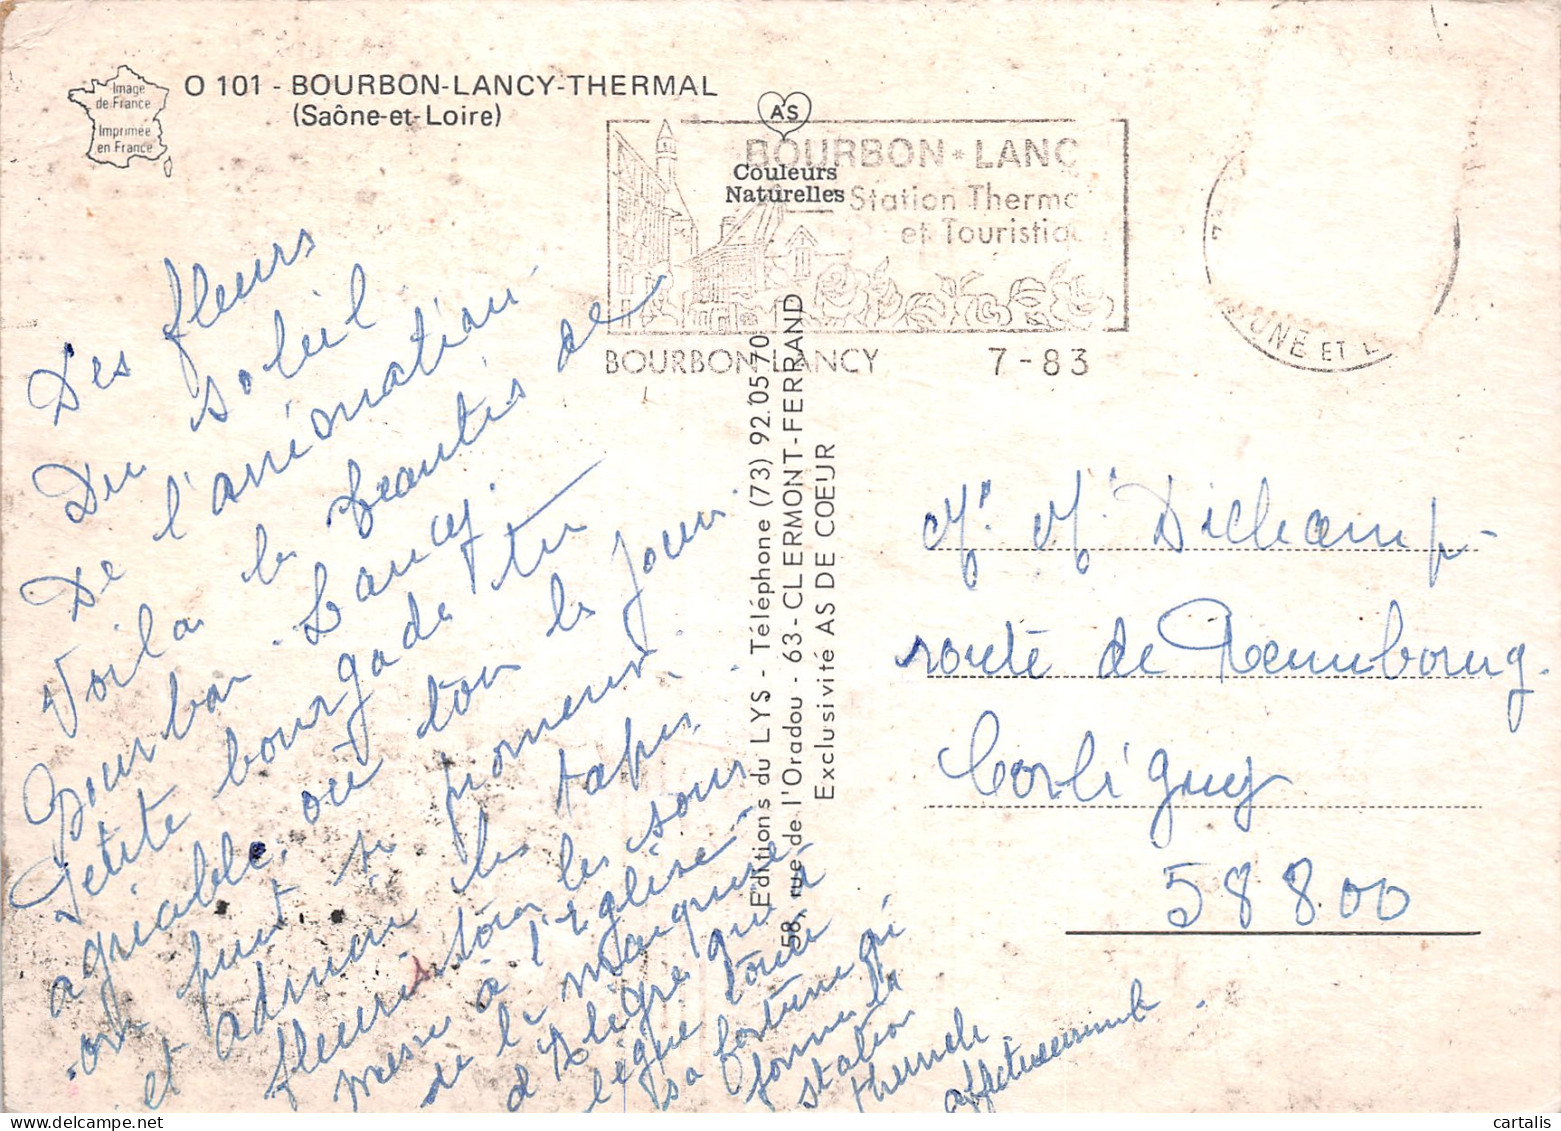 Image
de France
Imprimée
en France
O 101 - BOURBON-LANCY-THERMAL
(Saône-et-Loire)
AS
Couleurs
Naturelles
BOURBON * LANC
Station Therma
et Touristiq
BOURBON LANCY 7-83
ÔNE ET L
Editions du LYS - Téléphone (73) 92.05.70
58, rue de l'Oradou - 63 - CLERMONT-FERRAND
Exclusivité AS DE COEUR
Des fleurs
Du soleil
De l'animation
Voila les beautés de
Bourbon-Lancy.
Petite bourgade très
agréable, où tous les jours
on peut se promener
et admirer les tapis
fleuris tous les jours
messe à l'Eglise
de la marquise
d'Aligre qui a
légué toute
sa fortune qui
forme la
station
thermale
affectueusement.
Mr. Mme Dichamp-
route de
Corbigny
58800
cartalis